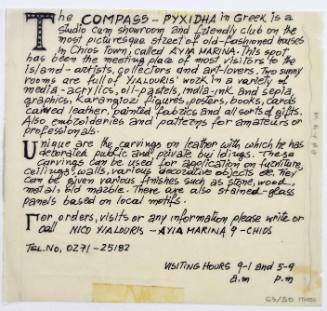 The COMPASS - PYXIDHA in Greek is a
studio cum showroom and friendly club on the
most picturesque street of old-fashioned houses
in Chios Town, called AYIA MARINA. This spot
has been the meeting place of most visitors to the
island - artists, collectors and art-lovers. Two sunny
rooms are full of YIALOURIS' work in a variety of
media - acrylics, oil-pastels, india-ink and sepia,
graphics, Karangiozi figures, posters, books, cards
carved leather, painted fabrics and all sorts of gifts.
Also embroideries and patterns for amateurs or
professionals.
Unique are the carvings on leather with which he has
decorated public and private buildings. These
carvings can be used for application on furniture,
ceilings, walls, various decorative objects etc. They
can be given various finishes such as stone, wood,
metal, old marble. There are also stained-glass
panels based on local motifs.
For orders, visits or any information please write or
call NICO YIALOURIS - AYIA MARINA 9 - CHIOS
TEL. NO. 0271-25182
VISITING HOURS 9-1 and 5-9
a.m p.m